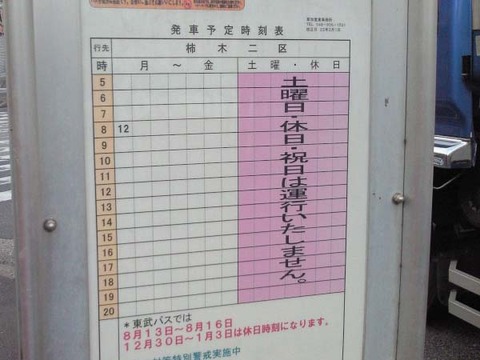 発車予定時刻表
行先 柿木二区
時 月～金 土曜・休日
5
6
7
8 12
9
10
11
12
13
14
15
16
17
18
19
20
土曜日・休日・祝日は運行いたしません。
*東武バスでは
8月13日～8月16日
12月30日～1月3日は休日時刻になります。
特別警戒実施中